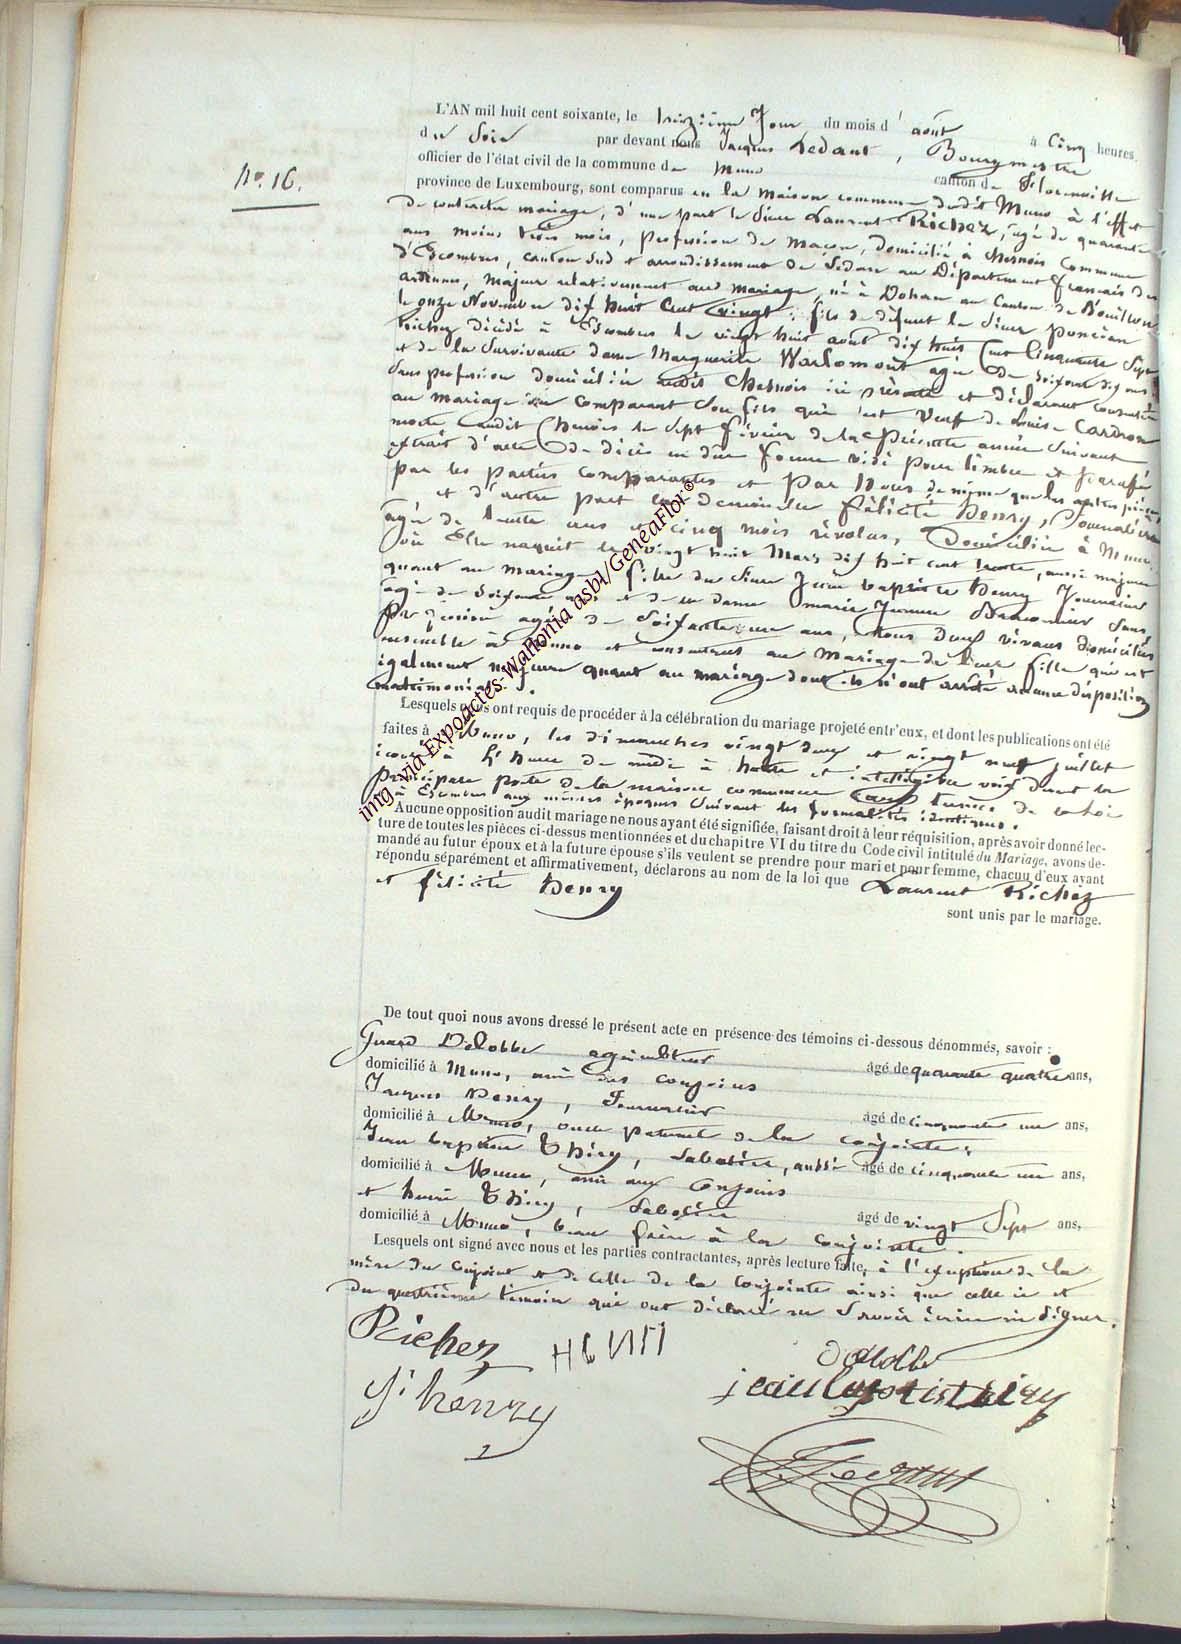 No. 16.
L'AN mil huit cent soixante, le treizième Jour du mois d'août à Cinq heures
du Soir par devant nous Jacques Ledant, Bourgmestre
officier de l'état civil de la commune de Muno canton de Florenville
province de Luxembourg, sont comparus en la maison commune dudit Muno à l'effet
de contracter mariage, d'une part le Sieur Laurent Richez, âgé de quarante
ans moins trois mois, profession de maçon, domicilié à Chesnois Commune
d'Escombres, canton Sud et arrondissement de Sédan au Département français des
ardennes, majeur relativement au mariage, né à Dohan au Canton de Bouillon
le onze Novembre dix huit Cent vingt; fils de défunt le Sieur poncian
Richez décédé à Escombres le vingt huit août dix huit Cent Cinquante Sept
et de la Survivante dame Marguerite Warlomont agée de soixante dix ans
Sans profession domiciliée audit Chesnois ici présente et déclarant consentir
au mariage du comparant Son fils qui est Veuf de Louise Cardron
morte audit Chesnois le Sept février de la présente année Suivant
extrait d'acte de décès en due forme visé pour timbre et paraphé
par les parties comparantes et par Nous de même que les autres pièces,
et d'autre part la demoiselle félicité henry, Journalière
agée de trente ans et cinq mois révolus, Domiciliée à Muno
où Elle naquit le vingt huit Mars dix huit cent trente, aussi majeure
quant au mariage, fille du Sieur Jean baptiste henry Journalier
âgé de Soixante ans et de la dame marie Jeanne Sans
profession agée de Soixante un ans, tous deux vivans domiciliés
ensemble à Muno et consentans au mariage de leur fille qui est
également majeure quant au mariage dont ils n'ont arrêté aucune disposition
matrimoniale.
Lesquels nous ont requis de procéder à la célébration du mariage projeté entr'eux, et dont les publications ont été
faites à Muno, les dimanches vingt deux et vingt neuf juillet
écoulé à l'heure de midi à haute et intelligible voix devant la
principale porte de la maison commune
à Escombres aux mêmes époques Suivant les formalités identiques.
Aucune opposition audit mariage ne nous ayant été signifiée, faisant droit à leur réquisition, après avoir donné lec-
ture de toutes les pièces ci-dessus mentionnées et du chapitre VI du titre du Code civil intitulé du Mariage, avons de-
mandé au futur époux et à la future épouse s'ils veulent se prendre pour mari et pour femme, chacun d'eux ayant
répondu séparément et affirmativement, déclarons au nom de la loi que Laurent Richez
et félicité henry
sont unis par le mariage.
De tout quoi nous avons dressé le présent acte en présence des témoins ci-dessous dénommés, savoir :
Delobbe agriculteur âgé de quarante quatre ans,
domicilié à Muno, ami des conjoins
Jacques henry, Journalier âgé de cinquante un ans,
domicilié à Muno, oncle paternel de la conjointe;
Jean baptiste Thiry, Sabotier, aussi âgé de cinquante un ans,
domicilié à Muno, ami aux Conjoins
et henri Thiry, Sabotier âgé de vingt Sept ans,
domicilié à Muno, beau frère à la conjointe.
Lesquels ont signé avec nous et les parties contractantes, après lecture faite, à l'exception de la
mère du Conjoint et de celle de la Conjointe ainsi que celle ci et
du quatrième témoin qui ont déclaré ne Savoir écrire ni Signer.
Richez
Delobbe
jean baptist tiry
j henry
Ledant
img via Expoactes-Wallonia asbl/GeneaFlor©